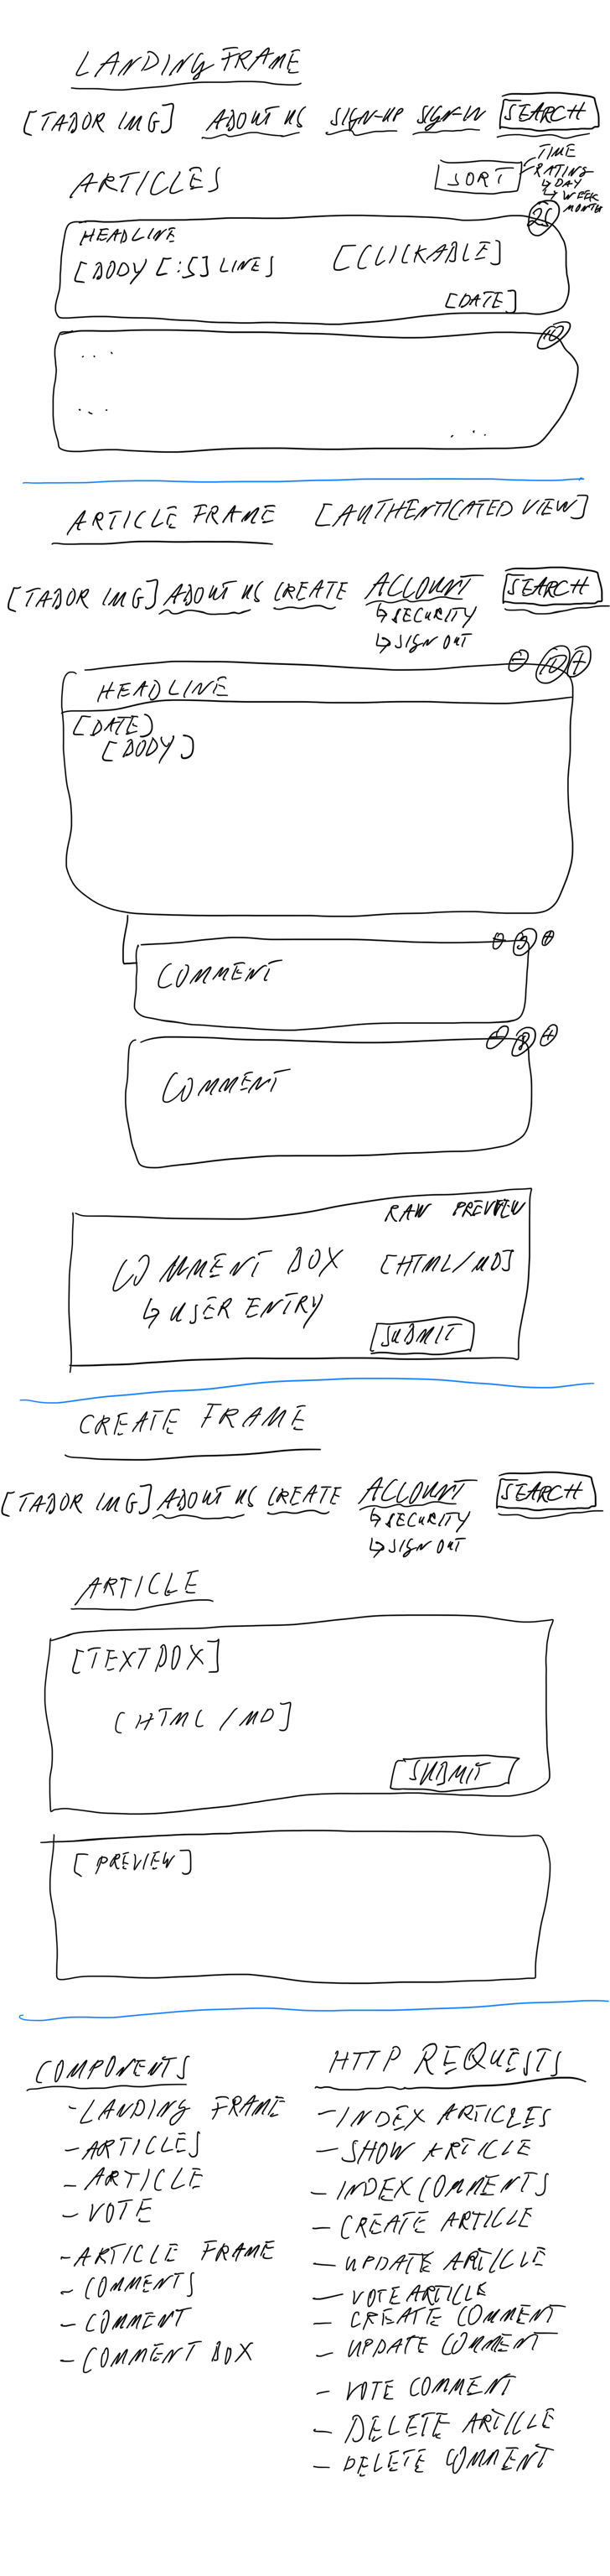 LANDING FRAME
[TABOR IMG] ABOUT US SIGN-UP SIGN-IN SEARCH
ARTICLES SORT TIME
RATING
↳ DAY
↳ WEEK
MONTH
25
HEADLINE
[BODY [:5] LINES] [CLICKABLE]
[DATE]
10
...
...
...
ARTICLE FRAME [AUTHENTICATED VIEW]
[TABOR IMG] ABOUT US CREATE ACCOUNT SEARCH
↳ SECURITY
↳ SIGN OUT
- 10 +
HEADLINE
[DATE]
[BODY]
- 3 +
COMMENT
- 8 +
COMMENT
RAW PREVIEW
COMMENT BOX [HTML/MD]
↳ USER ENTRY
SUBMIT
CREATE FRAME
[TABOR IMG] ABOUT US CREATE ACCOUNT SEARCH
↳ SECURITY
↳ SIGN OUT
ARTICLE
[TEXTBOX]
[HTML/MD]
SUBMIT
[PREVIEW]
COMPONENTS
- LANDING FRAME
- ARTICLES
- ARTICLE
- VOTE
- ARTICLE FRAME
- COMMENTS
- COMMENT
- COMMENT BOX
HTTP REQUESTS
- INDEX ARTICLES
- SHOW ARTICLE
- INDEX COMMENTS
- CREATE ARTICLE
- UPDATE ARTICLE
- VOTE ARTICLE
- CREATE COMMENT
- UPDATE COMMENT
- VOTE COMMENT
- DELETE ARTICLE
- DELETE COMMENT